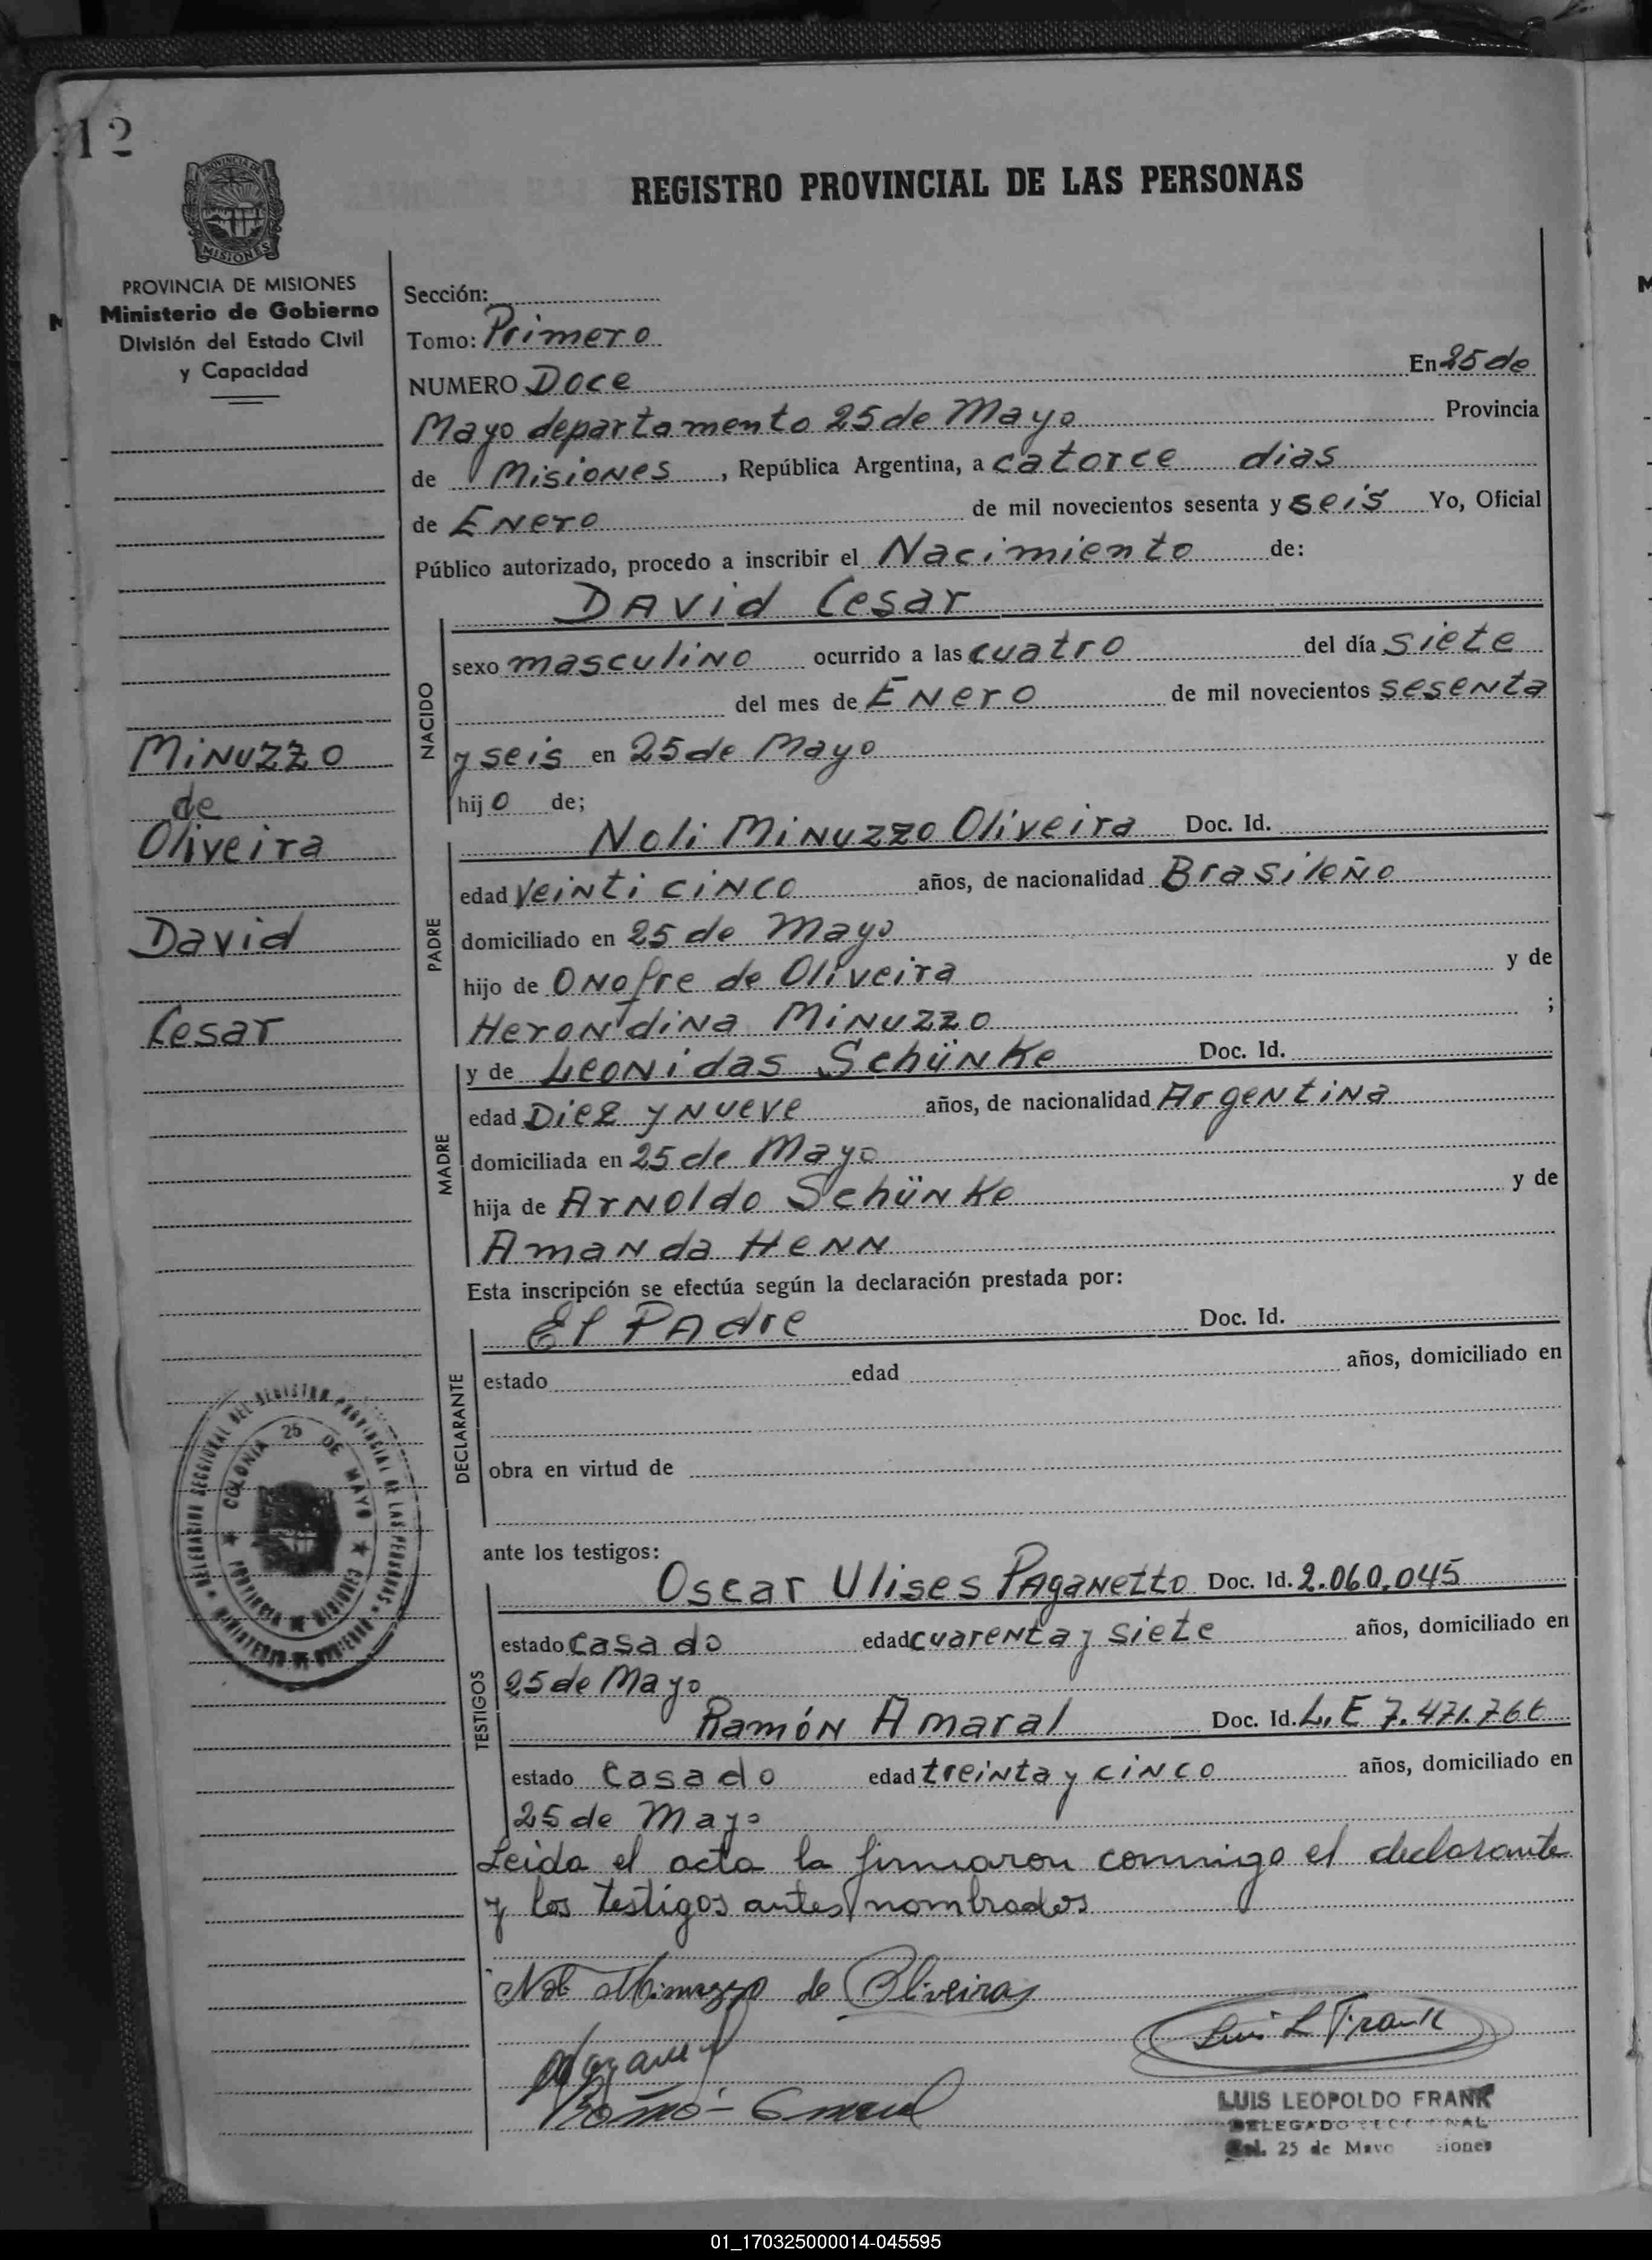 12
PROVINCIA DE
MISIONES
REGISTRO PROVINCIAL DE LAS PERSONAS
PROVINCIA DE MISIONES
Ministerio de Gobierno
División del Estado Civil
y Capacidad
Sección:
Tomo: Primero
NUMERO Doce En 25 de
Mayo departamento 25 de Mayo Provincia
de Misiones, República Argentina, a catorce dias
de Enero de mil novecientos sesenta y seis Yo, Oficial
Público autorizado, procedo a inscribir el Nacimiento de:
David Cesar
NACIDO
sexo masculino ocurrido a las cuatro del día siete
del mes de Enero de mil novecientos sesenta
y seis en 25 de Mayo
hijo de;
Minuzzo
de
Oliveira
David
Cesar
PADRE
Noli Minuzzo Oliveira Doc. Id.
edad veinti cinco años, de nacionalidad Brasileño
domiciliado en 25 de Mayo
hijo de Onofre de Oliveira y de
Herondina Minuzzo ;
MADRE
y de Leonidas Schünke Doc. Id.
edad Diez y nueve años, de nacionalidad Argentina
domiciliada en 25 de Mayo
hija de Arnoldo Schünke y de
Amanda Henn
Esta inscripción se efectúa según la declaración prestada por:
DECLARANTE
El Padre Doc. Id.
estado edad años, domiciliado en
obra en virtud de
DELEGACION SECCIONAL DEL REGISTRO PROVINCIAL DE LAS PERSONAS
COLONIA 25 DE MAYO
PROVINCIA DE MISIONES
MINISTERIO DE GOBIERNO
ante los testigos:
TESTIGOS
Oscar Ulises Paganetto Doc. Id. 2.060.045
estado casado edad cuarenta y siete años, domiciliado en
25 de Mayo
Ramón Amaral Doc. Id. L.E 7.471.766
estado Casado edad treinta y cinco años, domiciliado en
25 de Mayo
Leida el acta la firmaron conmigo el declarante
y los testigos antes nombrados
Noli Minuzzo de Oliveira
Luis L Frank
LUIS LEOPOLDO FRANK
DELEGADO
Col. 25 de Mayo
01_170325000014-045595